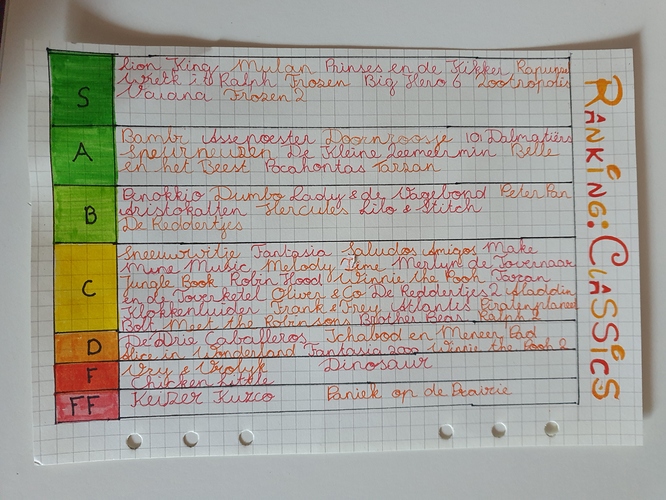 S
Lion King Mulan Prinses en de Kikker Rapunzel
Wreck it Ralph Frozen Big Hero 6 Zootropolis
Vaiana Frozen 2
A
Bambi Assepoester Doornroosje 101 Dalmatiërs
Speurneuzen De Kleine Zeemeermin Belle
en het Beest Pocahontas Tarzan
B
Pinokkio Dumbo Lady & de Vagebond Peter Pan
Aristokatten Hercules Lilo & Stitch
De Reddertjes
C
Sneeuwwitje Fantasia Saludos Amigos Make
Mine Music Melody Time Merlijn de Tovenaar
Jungle Book Robin Hood Winnie the Pooh Taran
en de Toverketel Oliver & Co De Reddertjes 2 Aladdin
Klokkenluider Frank & Frey Atlantis Piratenplaneet
Bolt Meet the Robinsons Brother Bear Ralph 2
D
De Drie Caballeros Ichabod en Meneer Pad
Alice in Wonderland Fantasia 2000 Winnie the Pooh 2
F
Vrij & Vrolijk Dinosaur
Chicken Little
FF
Keizer Kuzco Paniek op de Prairie
RANKING: CLASSICS